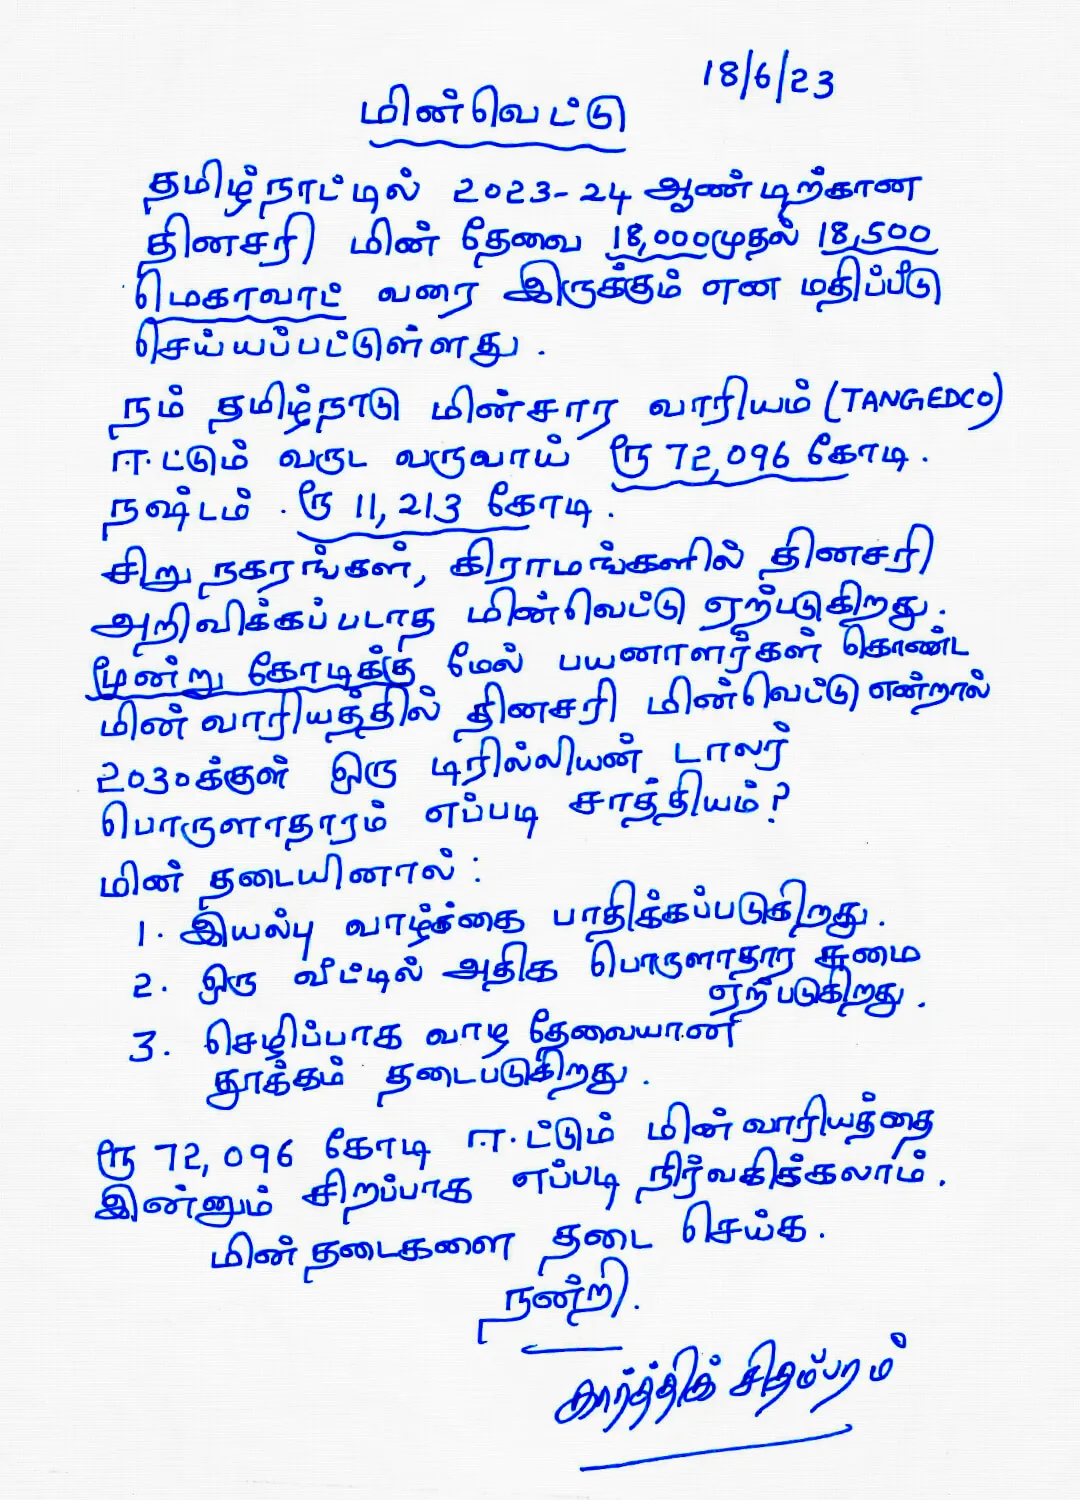 18/6/23
மின்வெட்டு
தமிழ்நாட்டில் 2023-24 ஆண்டிற்கான
தினசரி மின் தேவை 18,000முதல் 18,500
மெகாவாட் வரை இருக்கும் என மதிப்பீடு
செய்யப்பட்டுள்ளது.
நம் தமிழ்நாடு மின்சார வாரியம் (TANGEDCO)
ஈட்டும் வருட வருவாய் ரூ 72,096 கோடி.
நஷ்டம். ரூ 11,213 கோடி.
சிறு நகரங்கள், கிராமங்களில் தினசரி
அறிவிக்கப்படாத மின்வெட்டு ஏற்படுகிறது.
மூன்று கோடிக்கு மேல் பயனாளர்கள் கொண்ட
மின் வாரியத்தில் தினசரி மின்வெட்டு என்றால்
2030க்குள் ஒரு டிரில்லியன் டாலர்
பொருளாதாரம் எப்படி சாத்தியம்?
மின் தடையினால்:
1. இயல்பு வாழ்க்கை பாதிக்கப்படுகிறது.
2. ஒரு வீட்டில் அதிக பொருளாதார சுமை
ஏற்படுகிறது.
3. செழிப்பாக வாழ தேவையான
தூக்கம் தடைபடுகிறது.
ரூ 72,096 கோடி ஈட்டும் மின் வாரியத்தை
இன்னும் சிறப்பாக எப்படி நிர்வகிக்கலாம்.
மின் தடைகளை தடை செய்க.
நன்றி.
கார்த்திக் சிதம்பரம்